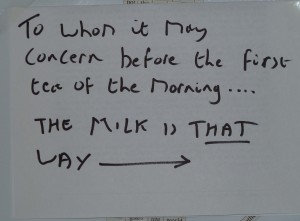 To whom it May
Concern before the first
tea of the Morning....
THE MILK IS THAT
WAY